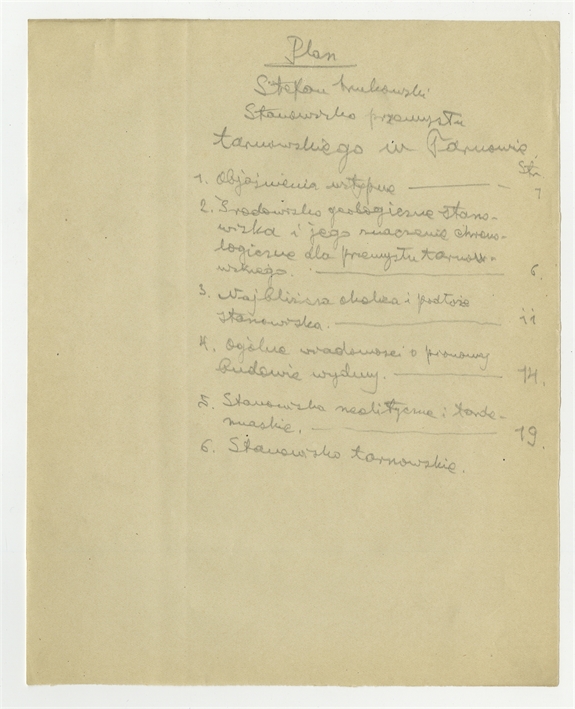 Plan
Stefan Krukowski
Stanowisko przemysłu
tarnowskiego w Tarnowie.
Str.
1. Objaśnienia wstępne — 1
2. Środowisko geologiczne stano-
wiska i jego znaczenie chrono-
logiczne dla przemysłu tarnow-
wskiego. — 6.
3. Najbliższa okolica i podłoże
stanowiska. — 11
4. Ogólne wiadomości o
budowie wydmy. — 14.
5. Stanowiska neolityczne i tarde-
nuaskie. — 19.
6. Stanowisko tarnowskie.